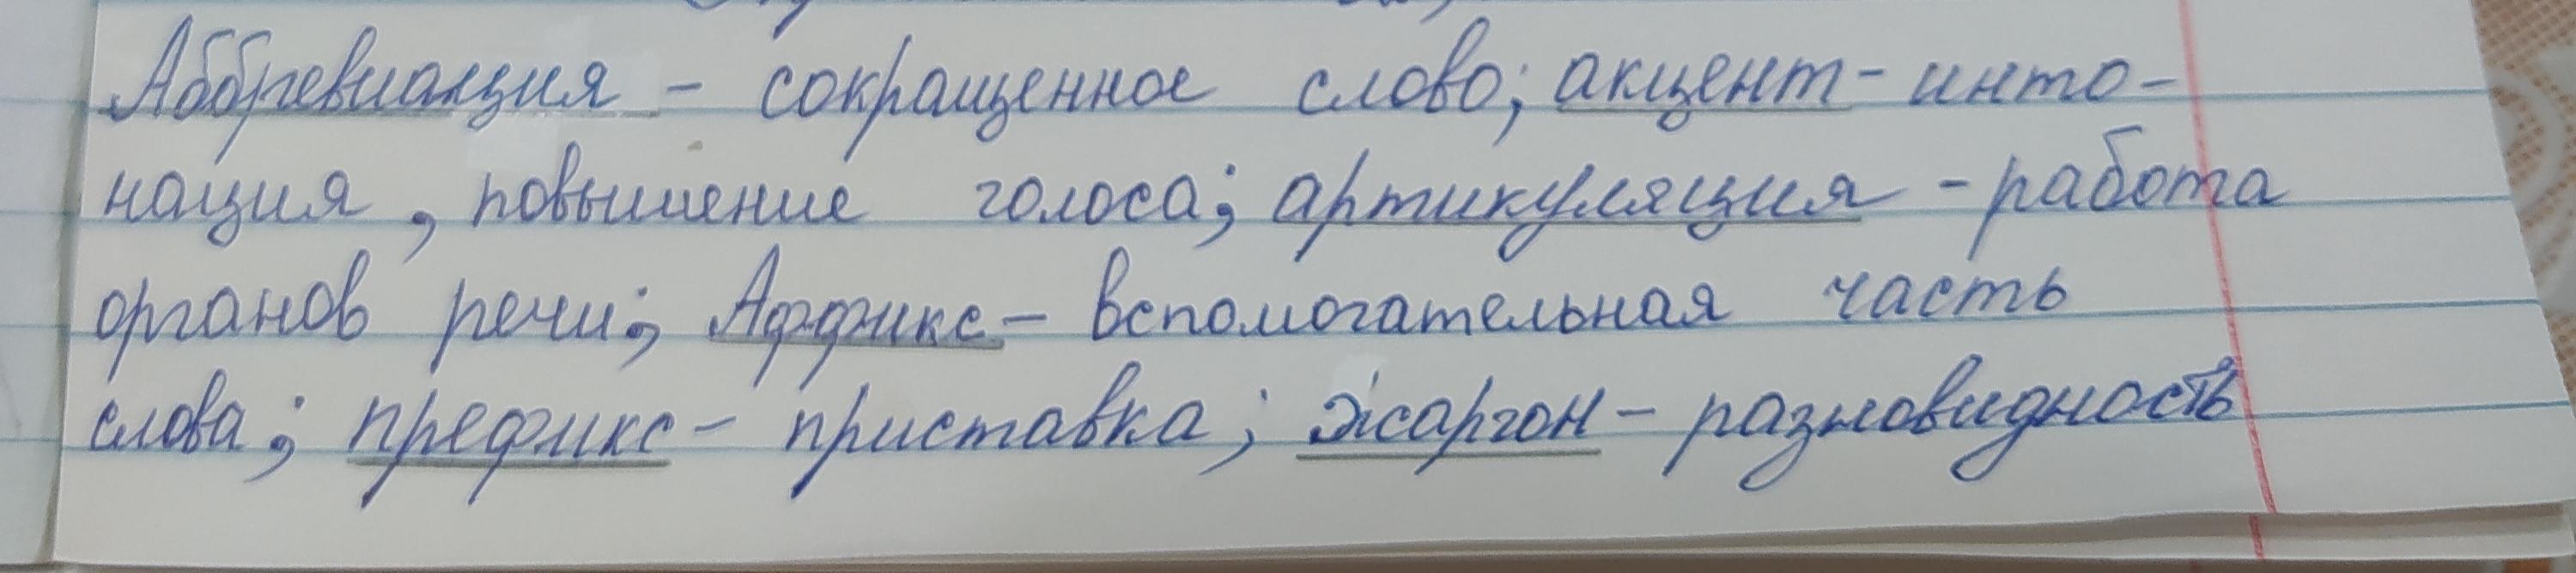 Аббревиация - сокращенное слово; акцент - инто-
нация, повышение голоса; артикуляция - работа
органов речи; Аффикс - вспомогательная часть
слова; префикс - приставка; жаргон - разновидность